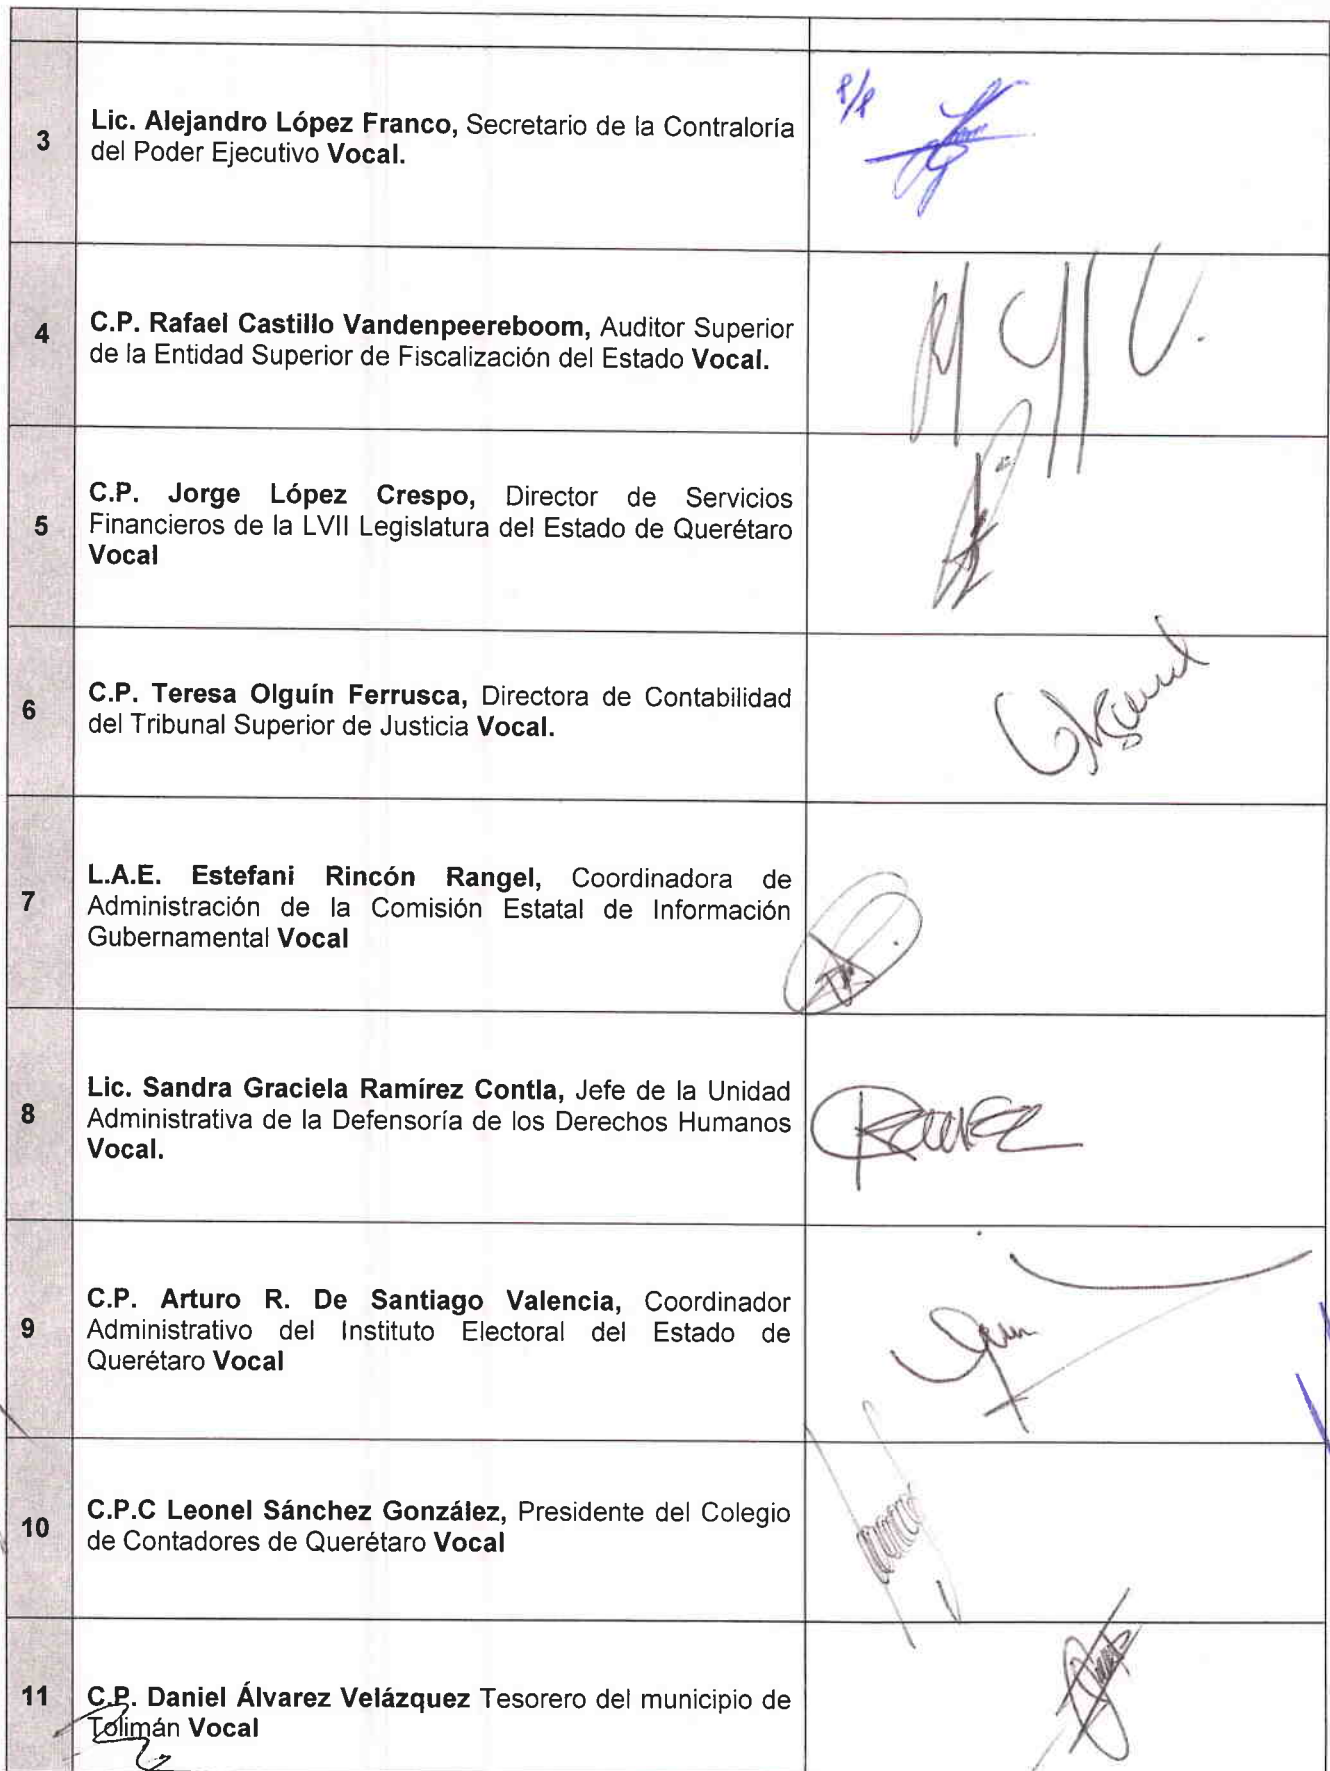 3
Lic. Alejandro López Franco, Secretario de la Contraloría
del Poder Ejecutivo Vocal.
P/P
4
C.P. Rafael Castillo Vandenpeereboom, Auditor Superior
de la Entidad Superior de Fiscalización del Estado Vocal.
5
C.P. Jorge López Crespo, Director de Servicios
Financieros de la LVII Legislatura del Estado de Querétaro
Vocal
6
C.P. Teresa Olguín Ferrusca, Directora de Contabilidad
del Tribunal Superior de Justicia Vocal.
7
L.A.E. Estefani Rincón Rangel, Coordinadora de
Administración de la Comisión Estatal de Información
Gubernamental Vocal
8
Lic. Sandra Graciela Ramírez Contla, Jefe de la Unidad
Administrativa de la Defensoría de los Derechos Humanos
Vocal.
9
C.P. Arturo R. De Santiago Valencia, Coordinador
Administrativo del Instituto Electoral del Estado de
Querétaro Vocal
10
C.P.C Leonel Sánchez González, Presidente del Colegio
de Contadores de Querétaro Vocal
11
C.P. Daniel Álvarez Velázquez Tesorero del municipio de
Tolimán Vocal